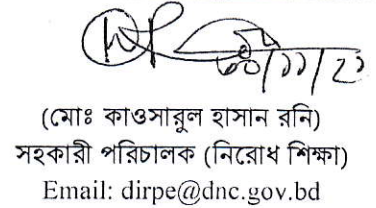 ৩০/১১/২১
(মোঃ কাওসারুল হাসান রনি)
সহকারী পরিচালক (নিরোধ শিক্ষা)
Email: dirpe@dnc.gov.bd